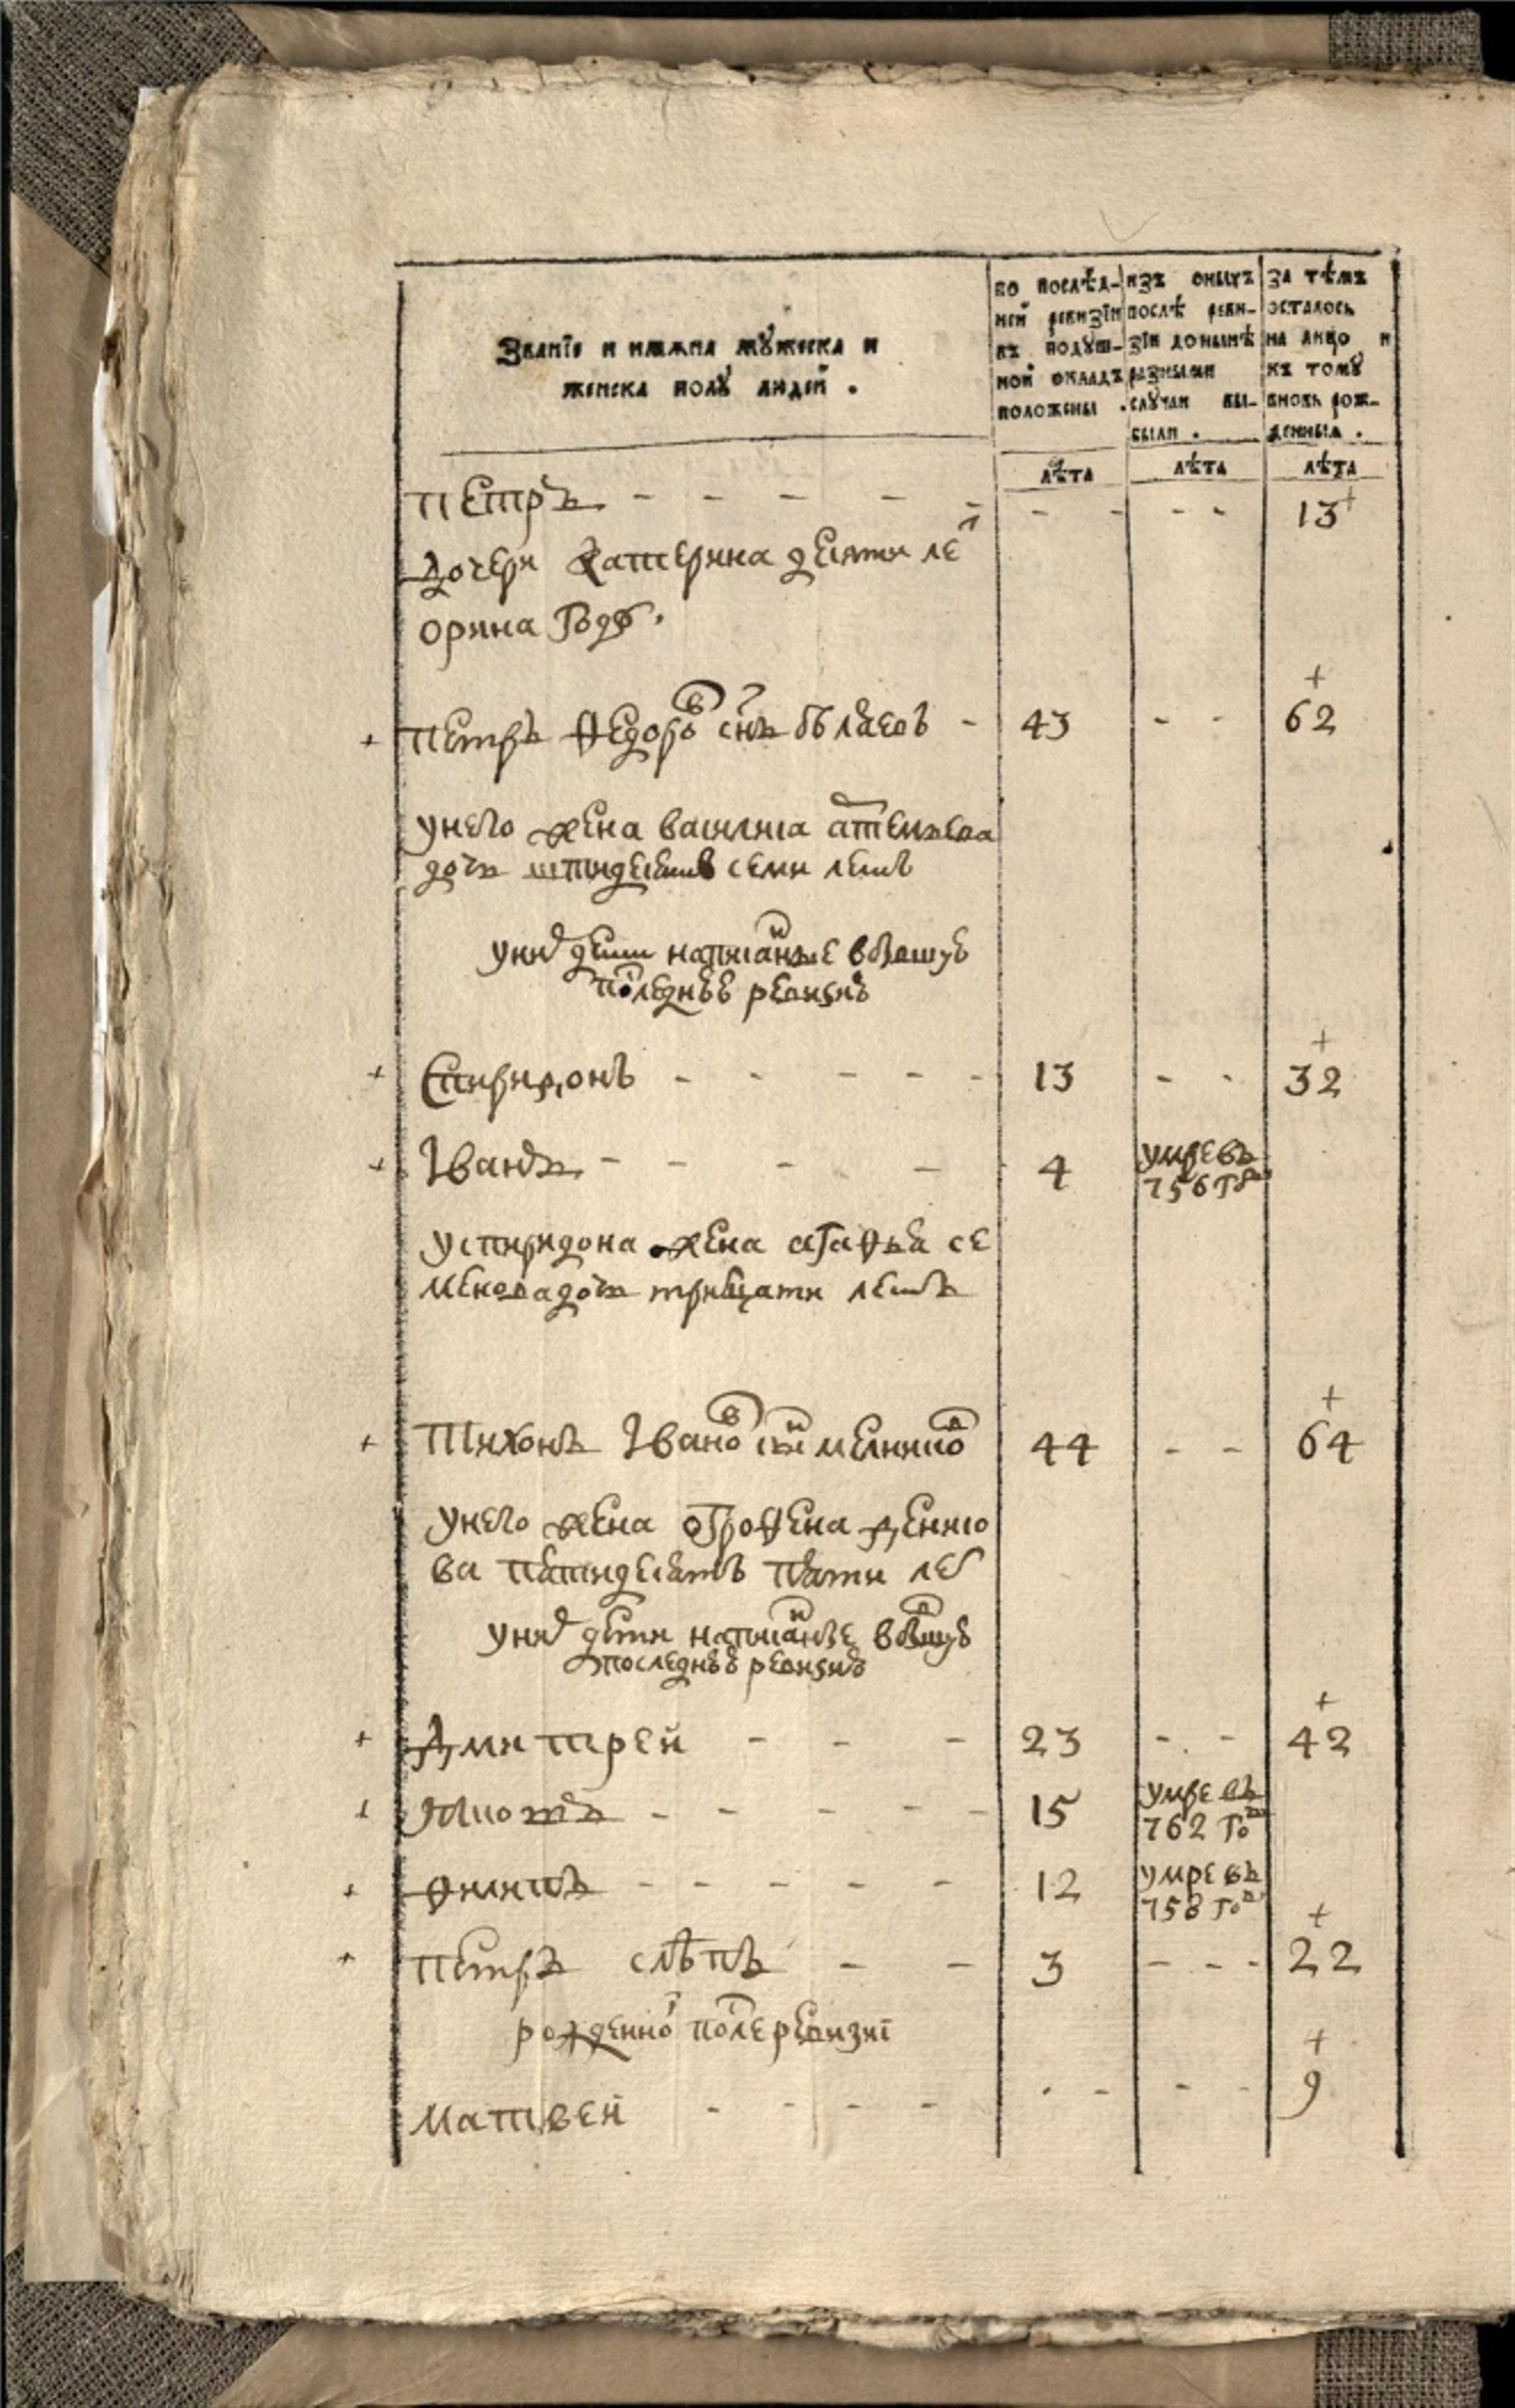 Званїе и имѧна мꙋжеска и
женска полꙋ людей .
во послѣд-
ней ревизїи
въ подуш-
ной окладъ
положены .
изъ оныхъ
послѣ реви-
зїи донынѣ
разными
случаи вы-
были .
за тѣмъ
осталось
на лицо и
къ томꙋ
вновь рож-
денныѧ .
лѣта лѣта лѣта
петръ - - - - - - - - - 13+
дочери катерина десяти ле т
орина году .
+
+ петръ ѳедоро в снъ беляевъ - 43 - - 62
унего жена василиса
дочь семи летъ
уних дети написанные
последнеѣ ревизиѣ
+
+ Спиридонъ - - - - - 13 - - 32
+ Iванъ - - - - 4 умре въ
756 го д
успиридона жена агафья се
менова дочь тритцати летъ
+
+ Тихонъ Iвано в снъ мелнико в 44 - - 64
унего жена ѳгрофена денисо
ва пятидесятъ пяти лет
уних дети написаные
последнеѣ ревизиѣ
+
+ Дмитрей - - - 23 - - 42
+ - - - - - 15 умре въ
762 го д
+ филипъ - - - - - 12 умре въ
758 го д
+
+ петръ слѣпъ - - 3 - - - 22
рожденно й после ревизиї
+
матвей - - - - - - - - 9